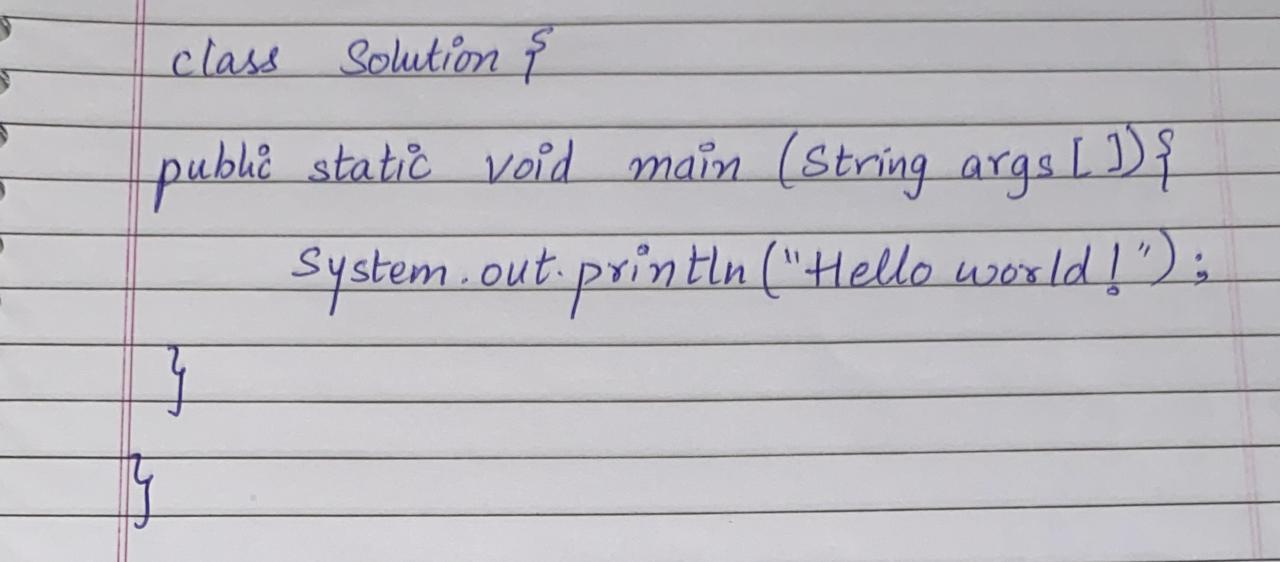 class Solution {
public static void main (String args [ ]) {
System.out.println ("Hello world!");
}
}